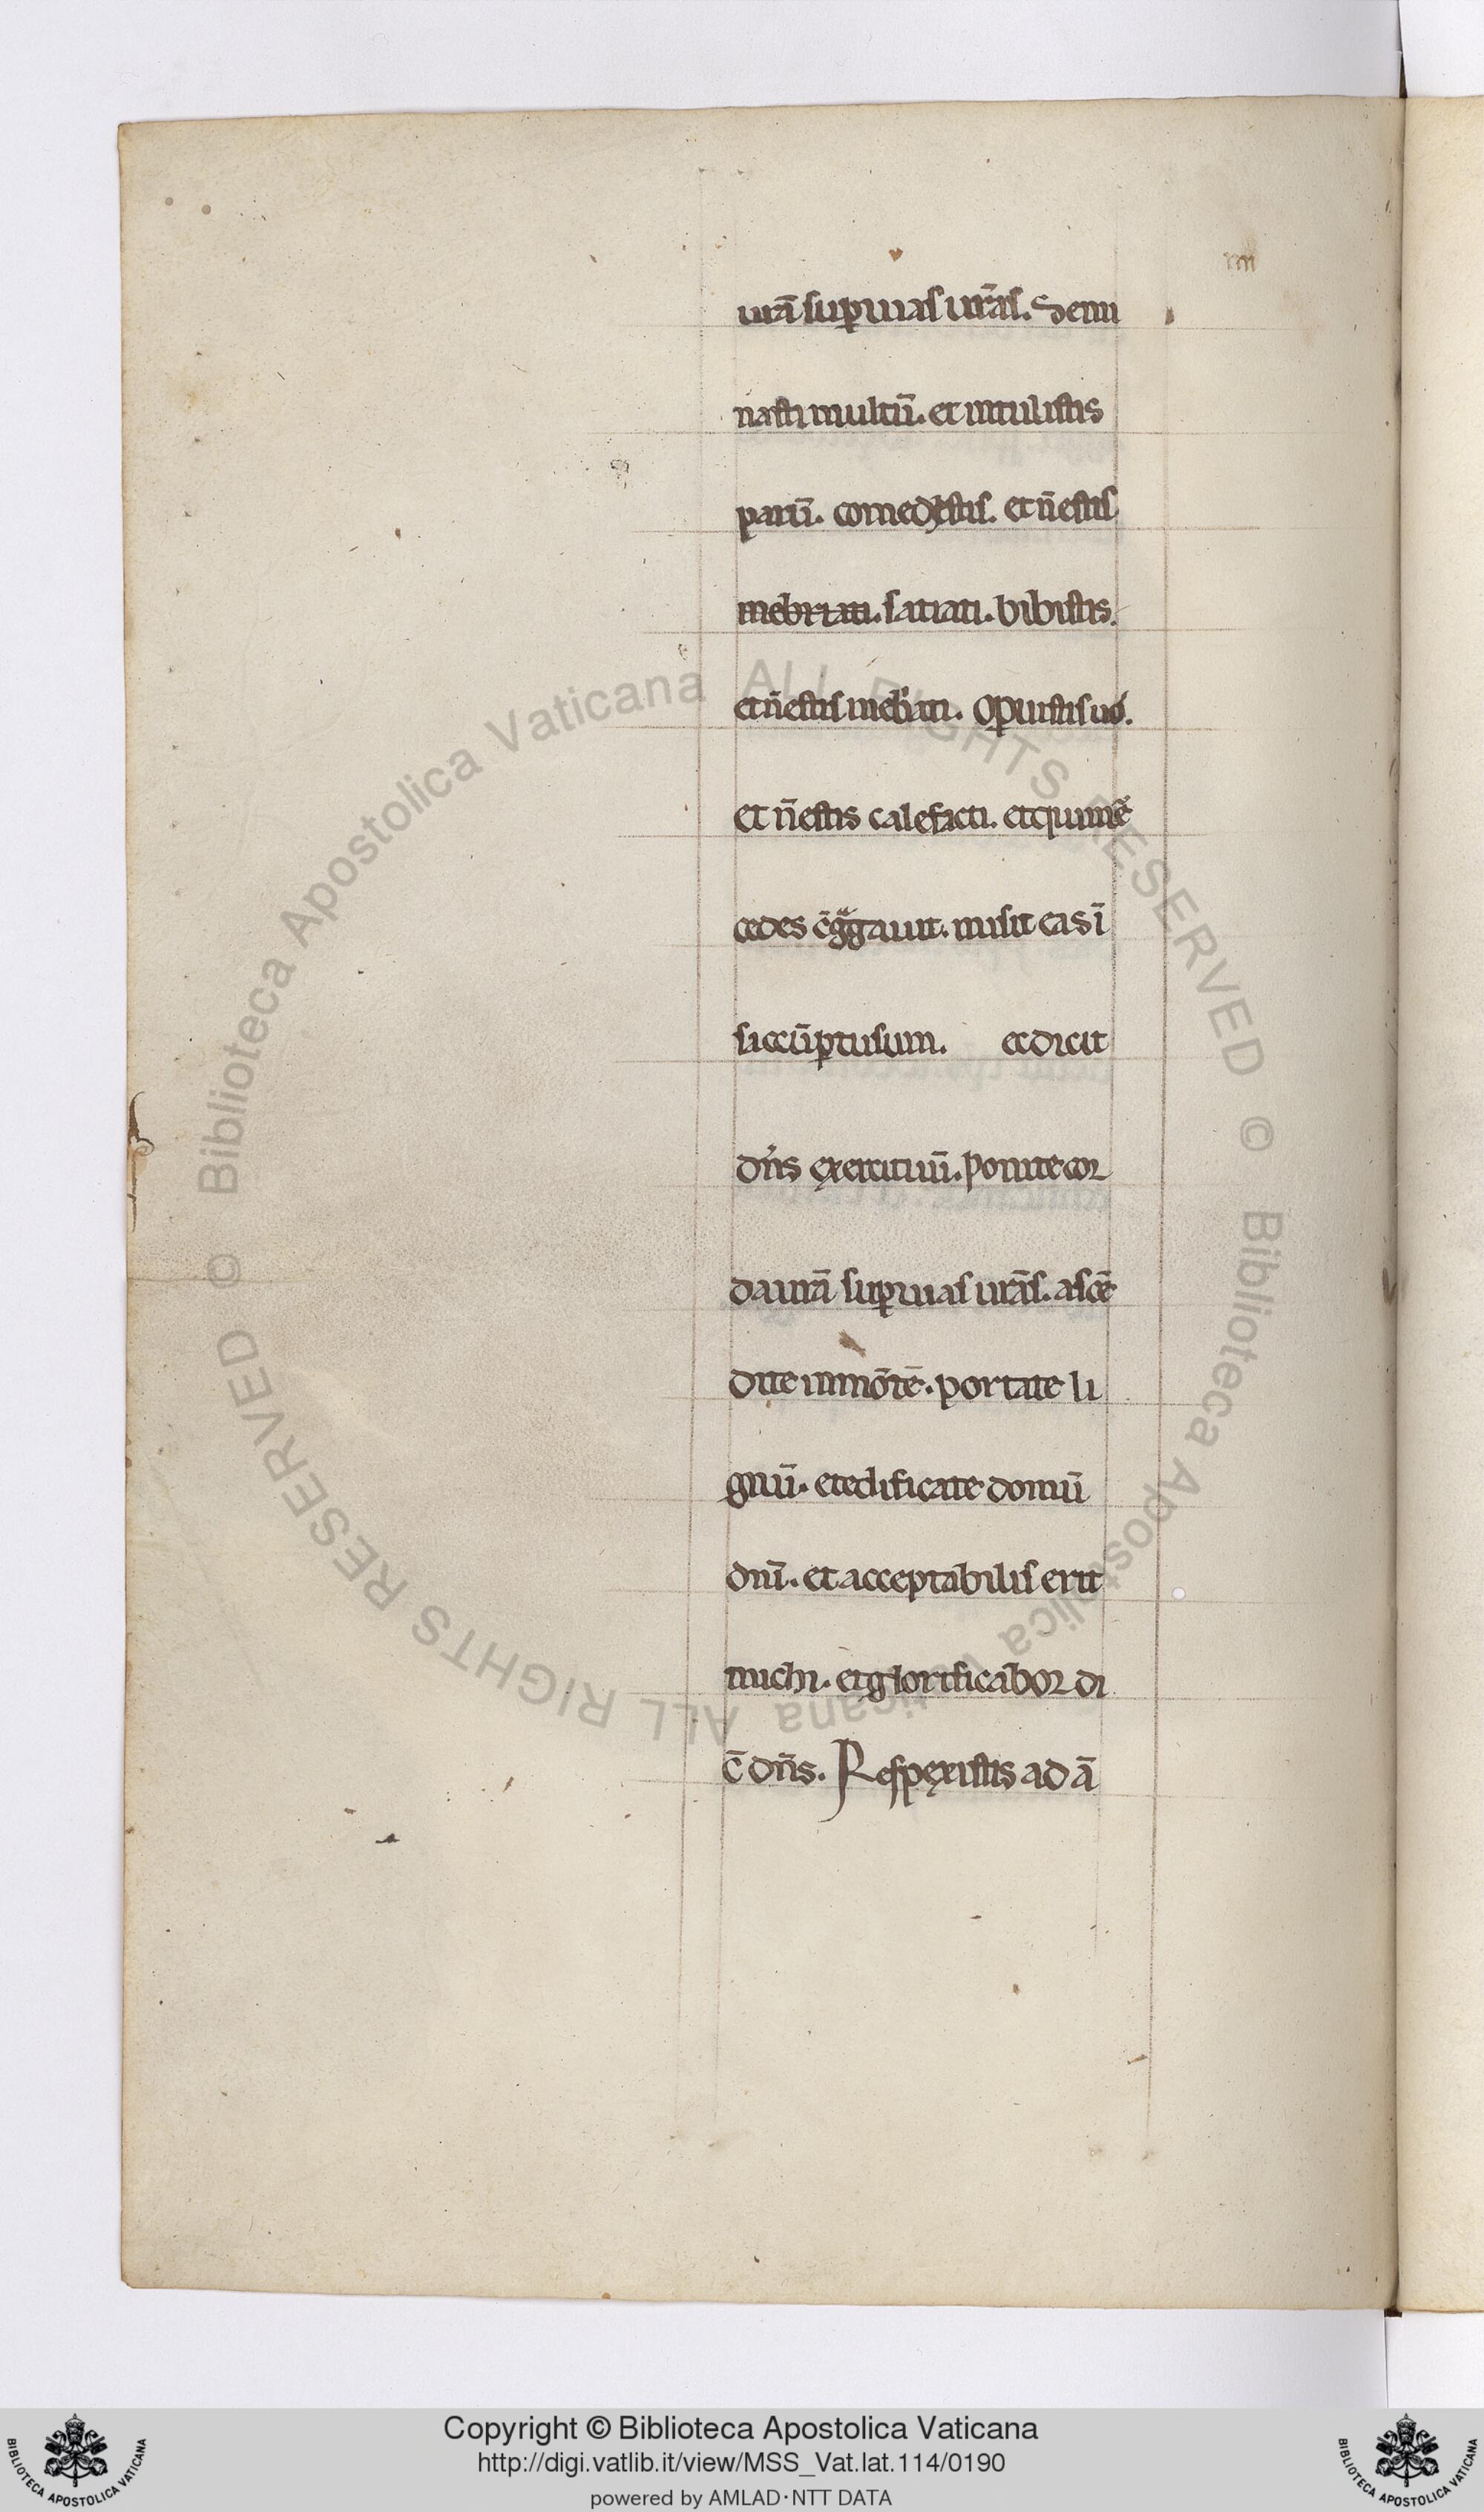 urā sup̱ uias ur̄as. Semi
nasti multū. et intulistis
parū. comedistis. et n̄ estis
inebriati. satiati. bibistis.
et n̄ estis inebⁱati. Op̱uistis uos.
et n̄ estis calefacti. et qui m̄e
cedes c̄gͣgauit. misit eas ī
saccū p̱tusum. ec dicit
dn̄s exercituū. Ponite cor
da urā sup̱ uias ur̄as. ascē
dite in mōtē. portate li
gnū. et edificate domū
dn̄i. et acceptabilis erit
michi. et glorificabor di
c̄ dn̄s. Respexistis ad ā
Copyright © Biblioteca Apostolica Vaticana
http://digi.vatlib.it/view/MSS_Vat.lat.114/0190
powered by AMLAD·NTT DATA
BIBLIOTECA APOSTOLICA VATICANA
BIBLIOTECA APOSTOLICA VATICANA
© Biblioteca Apostolica Vaticana ALL RIGHTS RESERVED
© Biblioteca Apostolica Vaticana ALL RIGHTS RESERVED